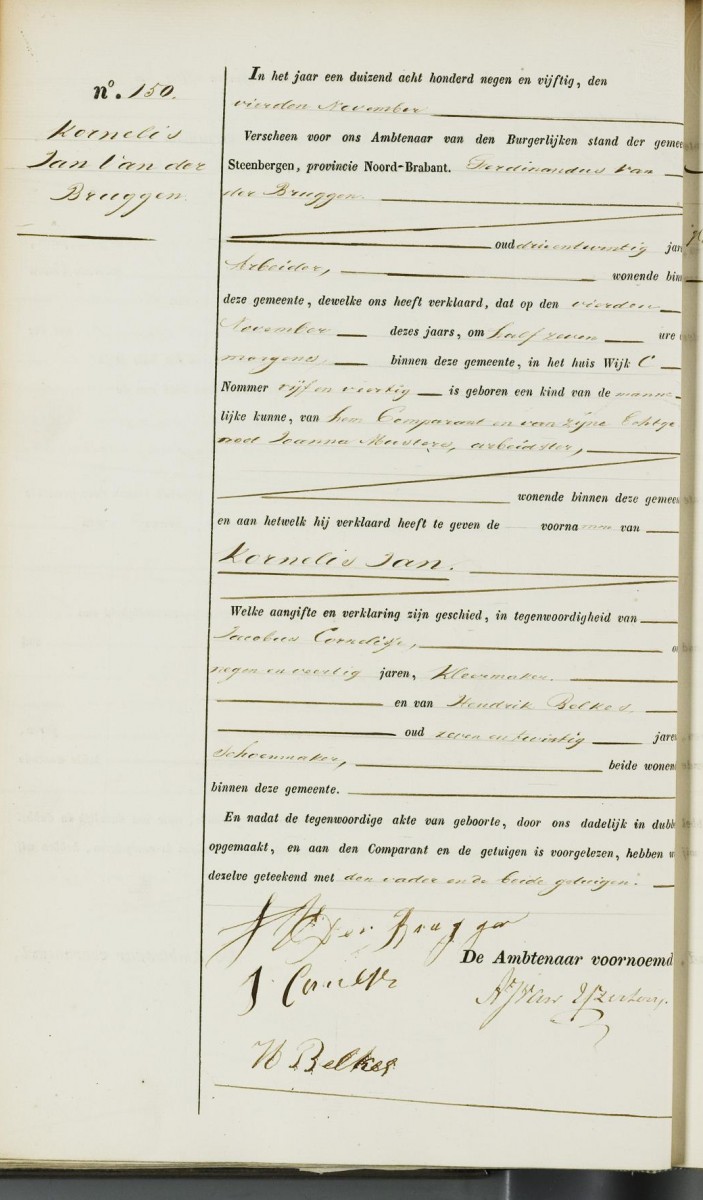 nº. 150.
Kornelis
Jan Van der
Bruggen
In het jaar een duizend acht honderd negen en vijftig, den
vierden November
Verscheen voor ons Ambtenaar van den Burgerlijken stand der geme
Steenbergen, provincie Noord-Brabant. Ferdinandus Van
der Bruggen
oud drieentwintig jar
Arbeider, wonende bin
deze gemeente, dewelke ons heeft verklaard, dat op den vierden
November dezes jaars, om half zeven ure
morgens, binnen deze gemeente, in het huis Wijk C
Nommer vijf en viertig is geboren een kind van de manne
lijke kunne, van hem Comparant en van zijne Echtge
noot Joanna Musters, arbeidster,
wonende binnen deze gemeen
en aan hetwelk hij verklaard heeft te geven de voornamen van
Kornelis Jan.
Welke aangifte en verklaring zijn geschied, in tegenwoordigheid van
Jacobus Cornelisse, o
negen en veertig jaren, Kleermaker.
en van Hendrik Belkes.
oud zeven en twintig jare
Schoenmaker, beide wonen
binnen deze gemeente.
En nadat de tegenwoordige akte van geboorte, door ons dadelijk in dubb
opgemaakt, en aan den Comparant en de getuigen is voorgelezen, hebben w
dezelve geteekend met den vader en de beide getuigen.
Der Brugge
De Ambtenaar voornoemd
J Cornelisse
H Belkes